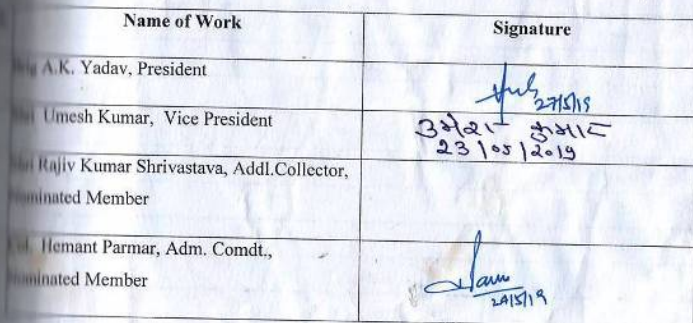 Name of Work Signature
A.K. Yadav, President
27/5/19
Umesh Kumar, Vice President
उमेश कुमार
23/05/2019
Rajiv Kumar Shrivastava, Addl.Collector,
Member
Hemant Parmar, Adm. Comdt.,
Member
24/5/19